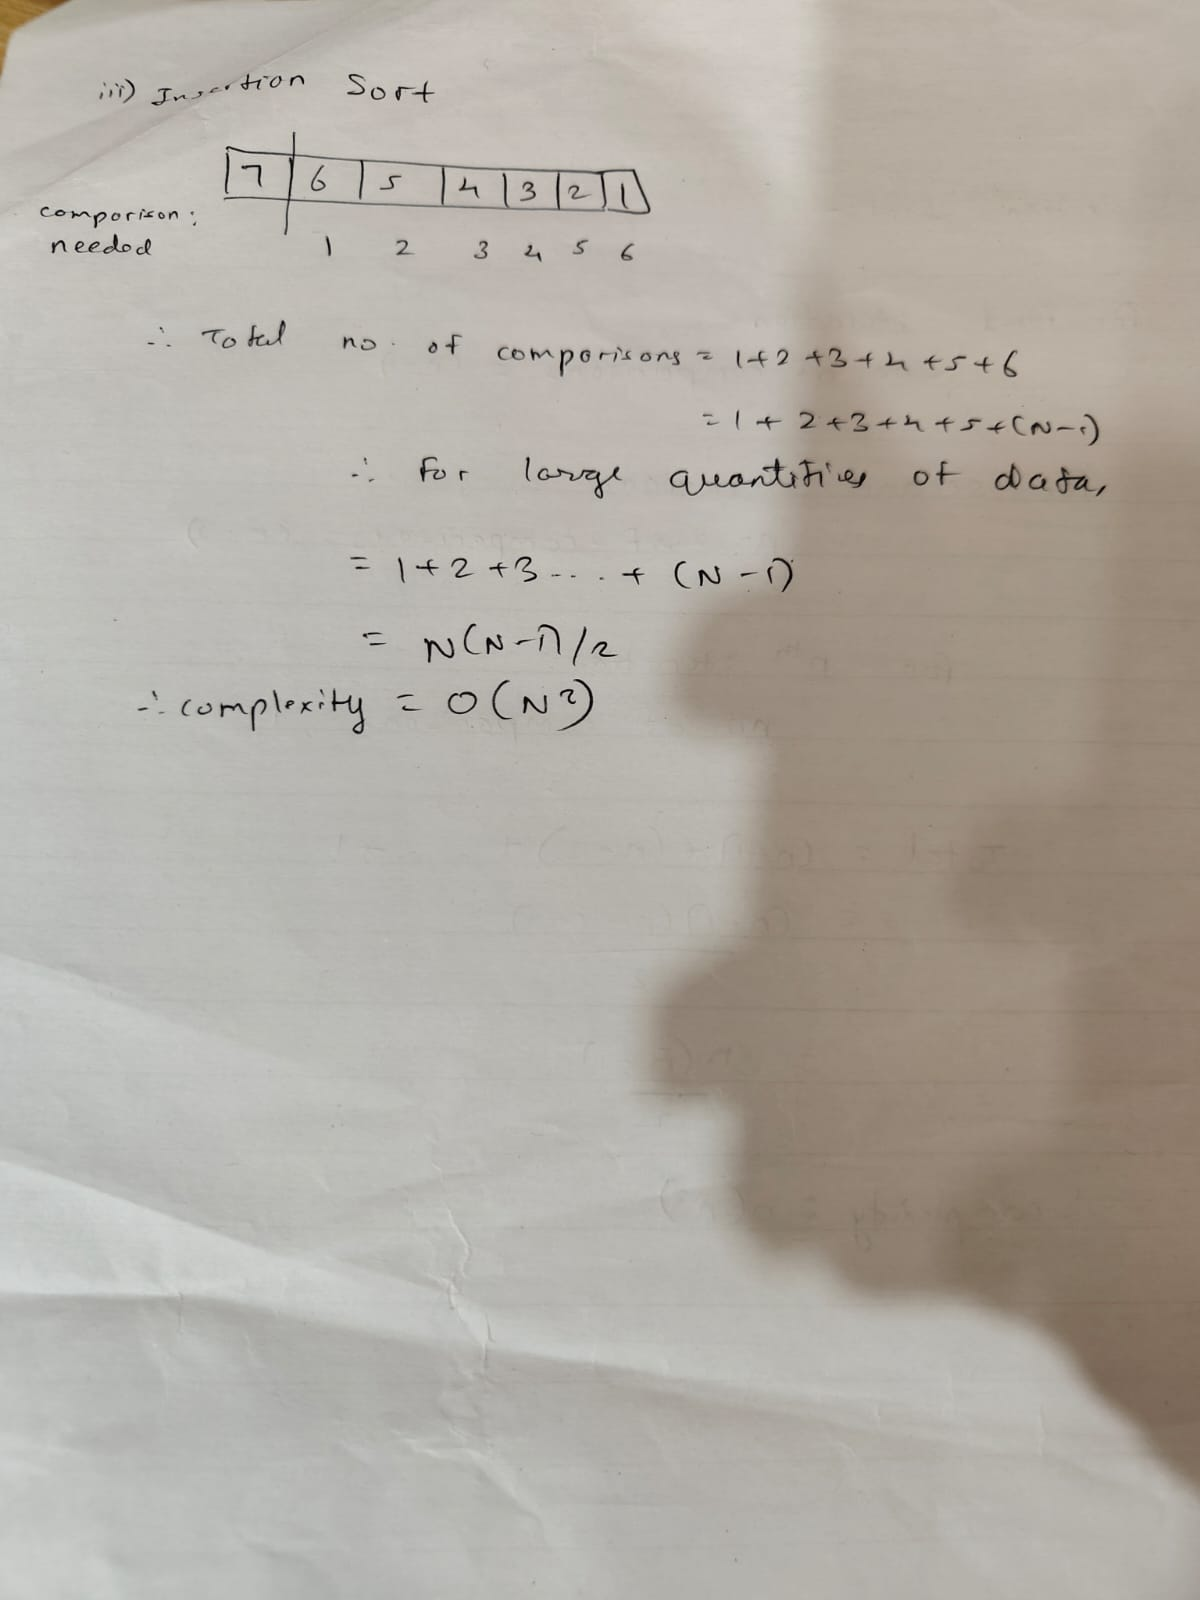 iii) Insertion Sort
7 6 5 4 3 2 1
comparison :
needed 1 2 3 4 5 6
∴ Total no. of comparisons = 1+2+3+4+5+6
= 1+2+3+4+5+(N-1)
∴ For large quantities of data,
= 1+2+3....+(N-1)
= N(N-1)/2
∴ complexity = O(N²)